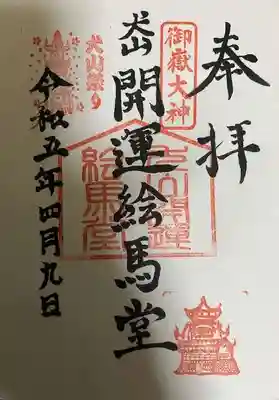 奉拝
御嶽大神
犬山
開運絵馬堂
犬山祭り
令和五年四月九日
犬山開運
絵馬堂